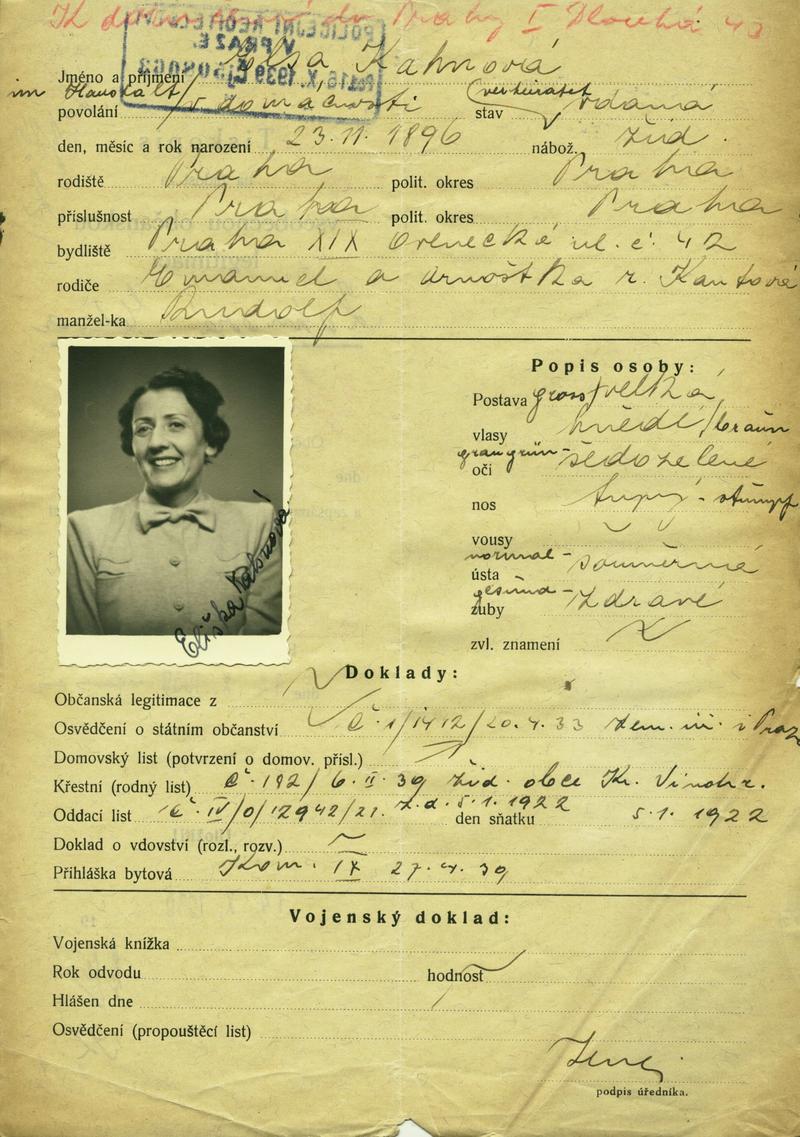 K do Prahy I Dlouhá 43
POLICEJNÍ
V PRAZE
16. X. 1939
Jméno a příjmení Elsa Kahnová
im Haushalt verheiratet
povolání / v domácnosti stav vdaná
den, měsíc a rok narození 23. 11. 1896 nábož. žid.
rodiště Praha polit. okres Praha
příslušnost Praha polit. okres Praha
bydliště Praha XIX ul. č. 42
rodiče Emanuel a Arnoštka r. Kantová
manžel-ka Rudolf
Popis osoby:
Postava gross/velká
vlasy hnědé/braun
graugrün-
oči šedozelené
nos tupý - stumpf
vousy
normal -
ústa souměrná
gesund -
zuby zdravé
zvl. znamení
Eliška Kahnová
Doklady:
Občanská legitimace z
Osvědčení o státním občanství č. 1/1412/20.4.33 zem. úř. v Praze
Domovský list (potvrzení o domov. přísl.)
Křestní (rodný list) č. 192/6. II. 39 žid. obce Kr. Vinohr.
Oddací list č. IV/0/12942/21. z. d. 5. 1. 1922 den sňatku 5. 1. 1922
Doklad o vdovství (rozl., rozv.)
Přihláška bytová Kom. IX 27. 4. 39
Vojenský doklad:
Vojenská knížka
Rok odvodu hodnost
Hlášen dne
Osvědčení (propouštěcí list)
podpis úředníka.